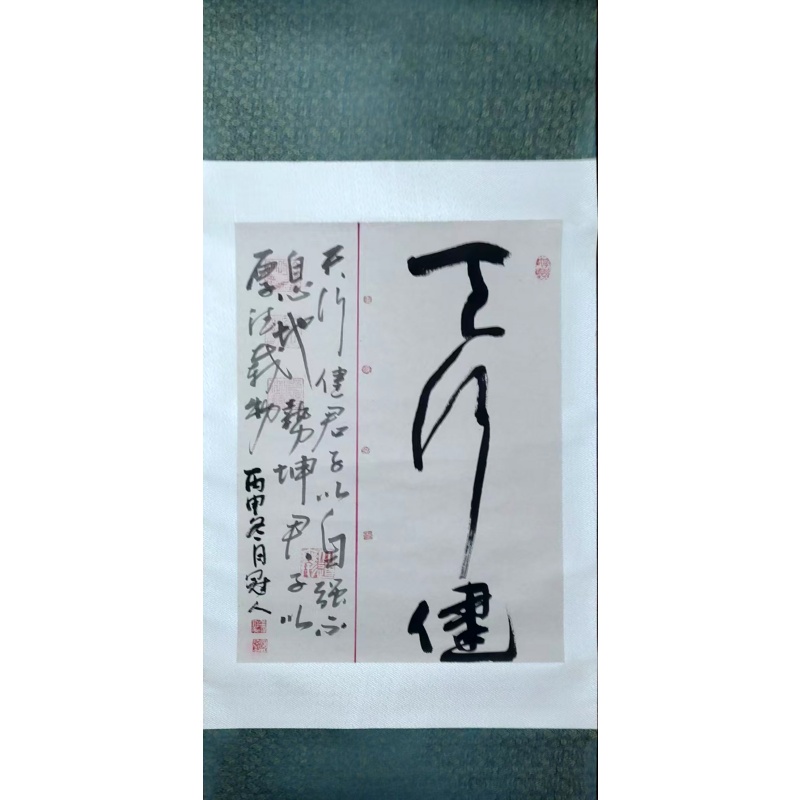 天行健
天行健君子以自强不
息地势坤君子以
厚德载物
丙申冬月冠人